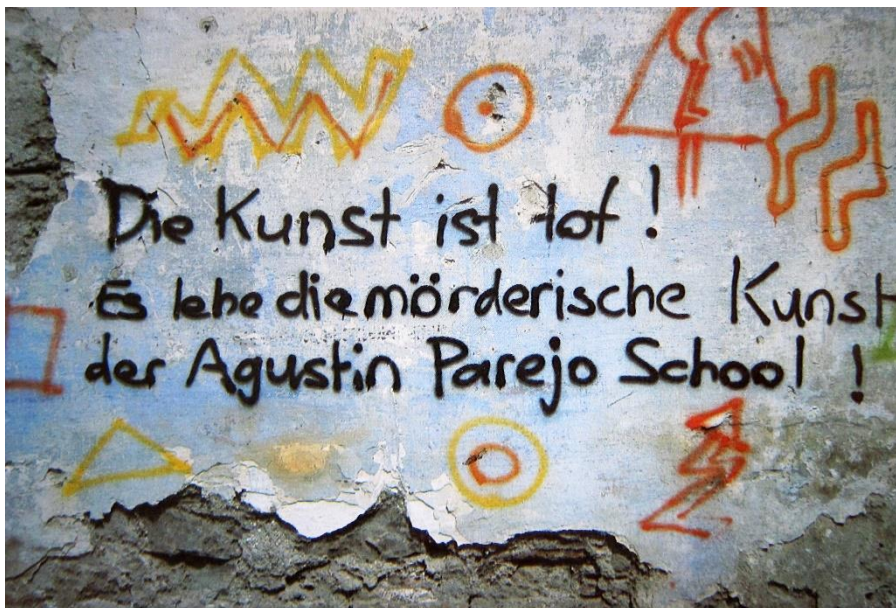 Die Kunst ist tot!
Es lebe die mörderische Kunst
der Agustin Parejo School!